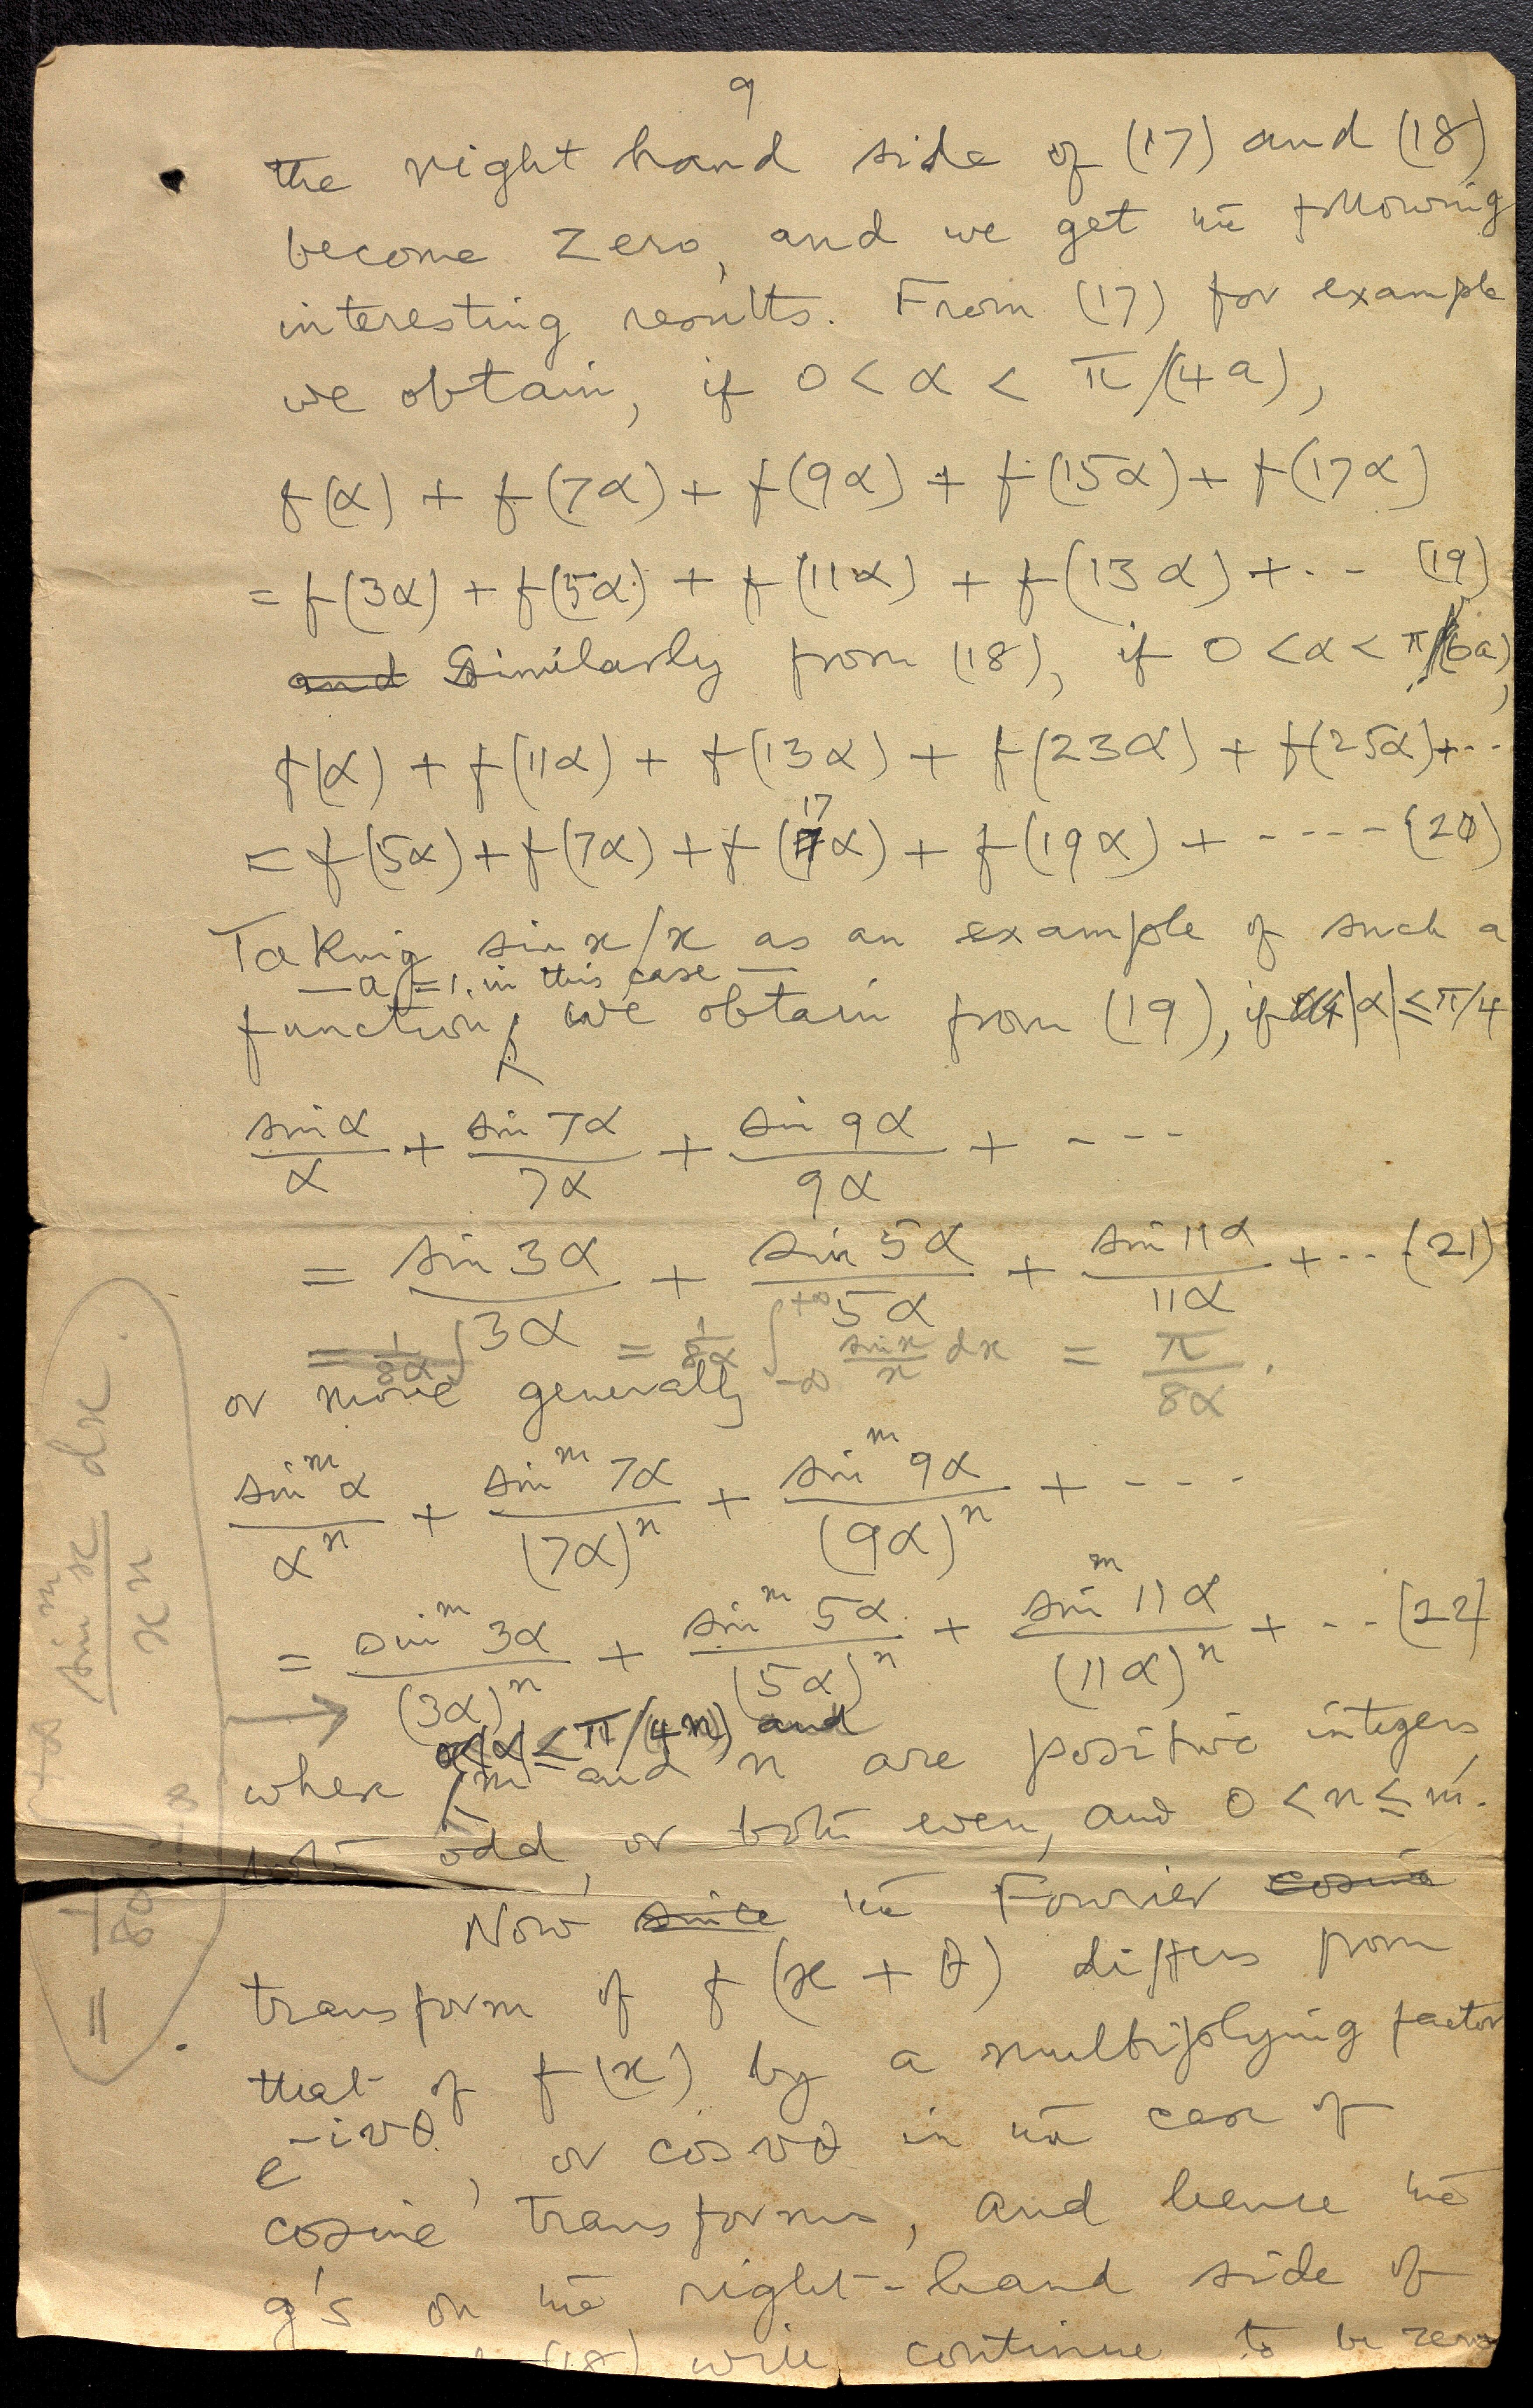 9
the right hand side of (17) and (18)
become zero, and we get the following
interesting results. From (17) for example
we obtain, if 0 < α < π/(4a),
f(α) + f(7α) + f(9α) + f(15α) + f(17α)
= f(3α) + f(5α) + f(11α) + f(13α) + ·-- (19)
and Similarly from (18), if 0 < α < π/(6a),
f(α) + f(11α) + f(13α) + f(23α) + f(25α) + ···
17
= f(5α) + f(7α) + f(7α) + f(19α) + ----- (20)
Taking sin x/x as an example of such a
— a = 1, in this case —
function, we obtain from (19), if |α| ≤ π/4
sin α/α + sin 7α/7α + sin 9α/9α + ---
= sin 3α/3α + sin 5α/5α + sin 11α/11α + ··· (21)
= 1/8α ∫ = 1/8α ∫_{-∞}^{+∞} sin x/x dx = π/8α.
or more generally
sin^m α/α^n + sin^m 7α/(7α)^n + sin^m 9α/(9α)^n + ----
= sin^m 3α/(3α)^n + sin^m 5α/(5α)^n + sin^m 11α/(11α)^n + ·-- (22)
|α| ≤ π/(4m) and
where m and n are positive integers
both odd, or both even, and 0 < n ≤ m.
Now since the Fourier cosine
transform of f(x + θ) differs from
that of f(x) by a multiplying factor
e^{-ivθ}, or cos vθ in the case of
cosine transforms, and hence the
g's on the right-hand side of
(18) will continue to be zero
= 1/8α ∫_{-∞}^{+∞} sin^m x/x^n dx.